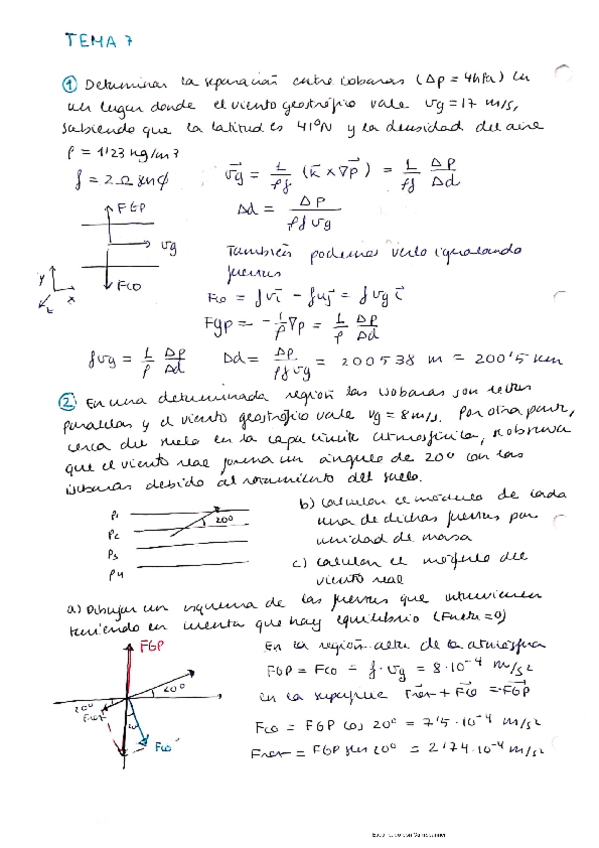 TEMA 7
① Determinar la separación entre isobaras (Δp = 4hPa) en
un lugar donde el viento geostrófico vale vg = 17 m/s,
sabiendo que la latitud es 41ºN y la densidad del aire
ρ = 1'23 kg/m³
f = 2Ω senϕ
v⃗g = 1/ρf (k⃗ × ∇⃗p) = 1/ρf Δp/Δd
FGP
vg
Fco
y
x
z
Δd = Δp/ρf vg
También podemos verlo igualando
fuerzas
Fco = f v i⃗ - f u j⃗ = f vg i⃗
Fgp = - 1/ρ ∇p = 1/ρ Δp/Δd
f vg = 1/ρ Δp/Δd   Δd = Δp/ρf vg = 200538 m = 200'5 km
② En una determinada región las isobaras son rectas
paralelas y el viento geostrófico vale vg = 8 m/s. Por otra parte,
cerca del suelo en la capa límite atmosférica, se observa
que el viento real forma un ángulo de 20º con las
isobaras debido al rozamiento del suelo.
P1
P2
P3
P4
20º
b) Calcular el módulo de cada
una de dichas fuerzas por
unidad de masa
c) Calcular el módulo del
viento real
a) Dibujar un esquema de las fuerzas que intervienen
teniendo en cuenta que hay equilibrio (Fneta = 0)
FGP
20º
20º
Froz
Fco
En la región alta de la atmósfera
FGP = Fco = f · vg = 8·10⁻⁴ m/s²
en la superficie F⃗roz + F⃗co = -F⃗GP
Fco = FGP cos 20º = 7'5·10⁻⁴ m/s²
Froz = FGP sen 20º = 2'74·10⁻⁴ m/s²